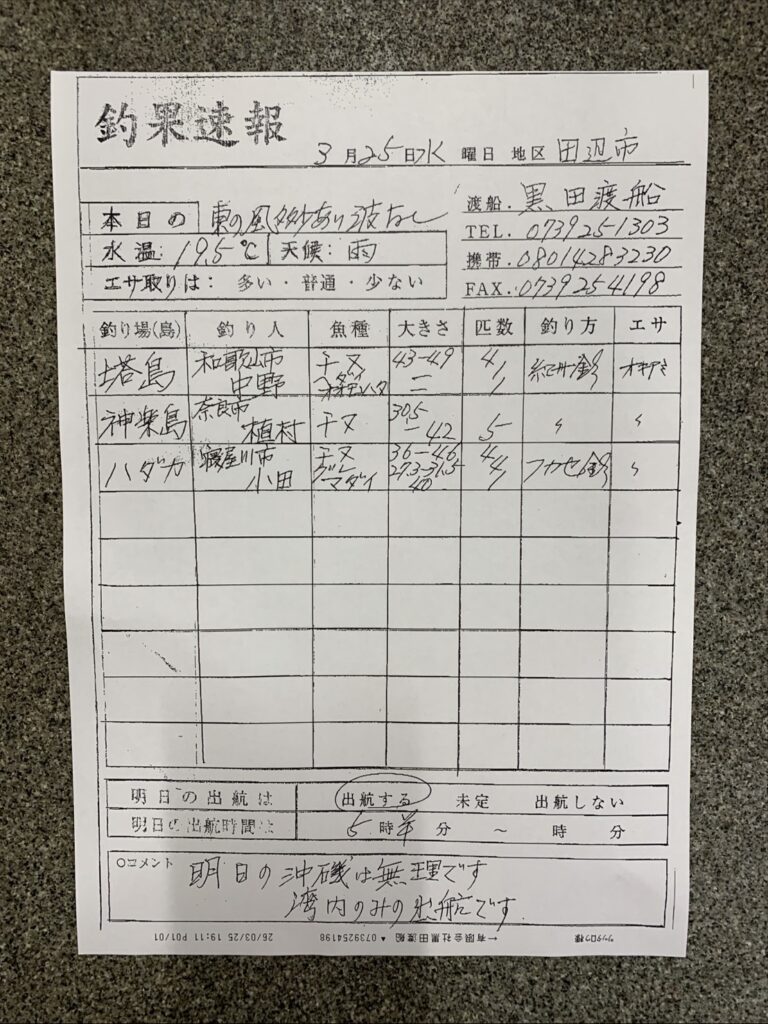 釣果速報
3月25日水曜日 地区 田辺市
渡船.黒田渡船
本日の 東の風多少あり波なし
TEL. 0739251303
水温:19.5℃ 天候:雨
携帯.08014283230
エサ取りは: 多い・普通・少ない
FAX.0739254198
釣り場(島) 釣り人 魚種 大きさ 匹数 釣り方 エサ
塔島 和歌山市 中野 チヌ 43-49 4 紀州釣 オキアミ
ハタ 1
神楽島 奈良市 植村 チヌ 30.5-42 5 〃 〃
ハダカ 寝屋川市 小田 チヌ 36-46 4 フカセ釣 〃
グレ 27.3-31.5 4
マダイ 40 1
明日の出航は 出航する 未定 出航しない
明日の出航時間は 5時半分 ~ 時 分
○コメント 明日の沖磯は無理です
湾内のみの出船です
ツッタロウ様 ←有限会社黒田渡船 ▲ 0739254198 26/03/25 19:11 P01/01